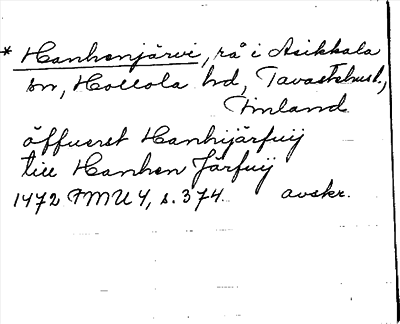 * Hanhenjärvi, rå i Asikkala
sn, Hollola hd, Tavastehusl.,
Finland
öffuerst Hanhijärfuij
till Hanhen Järfuij
1472 FMU 4, s. 374. avskr.